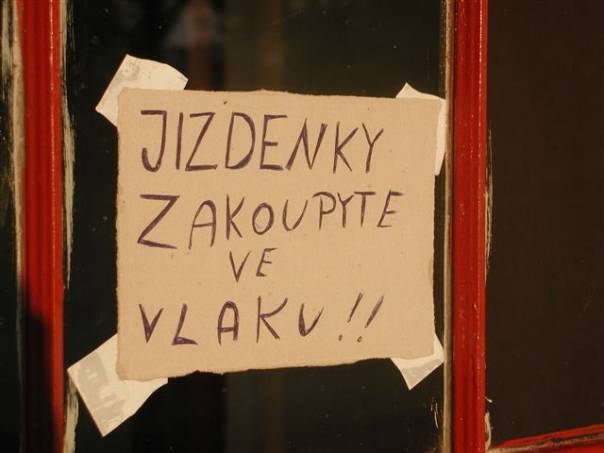 JIZDENKY
ZAKOUPYTE
VE
VLAKU!!